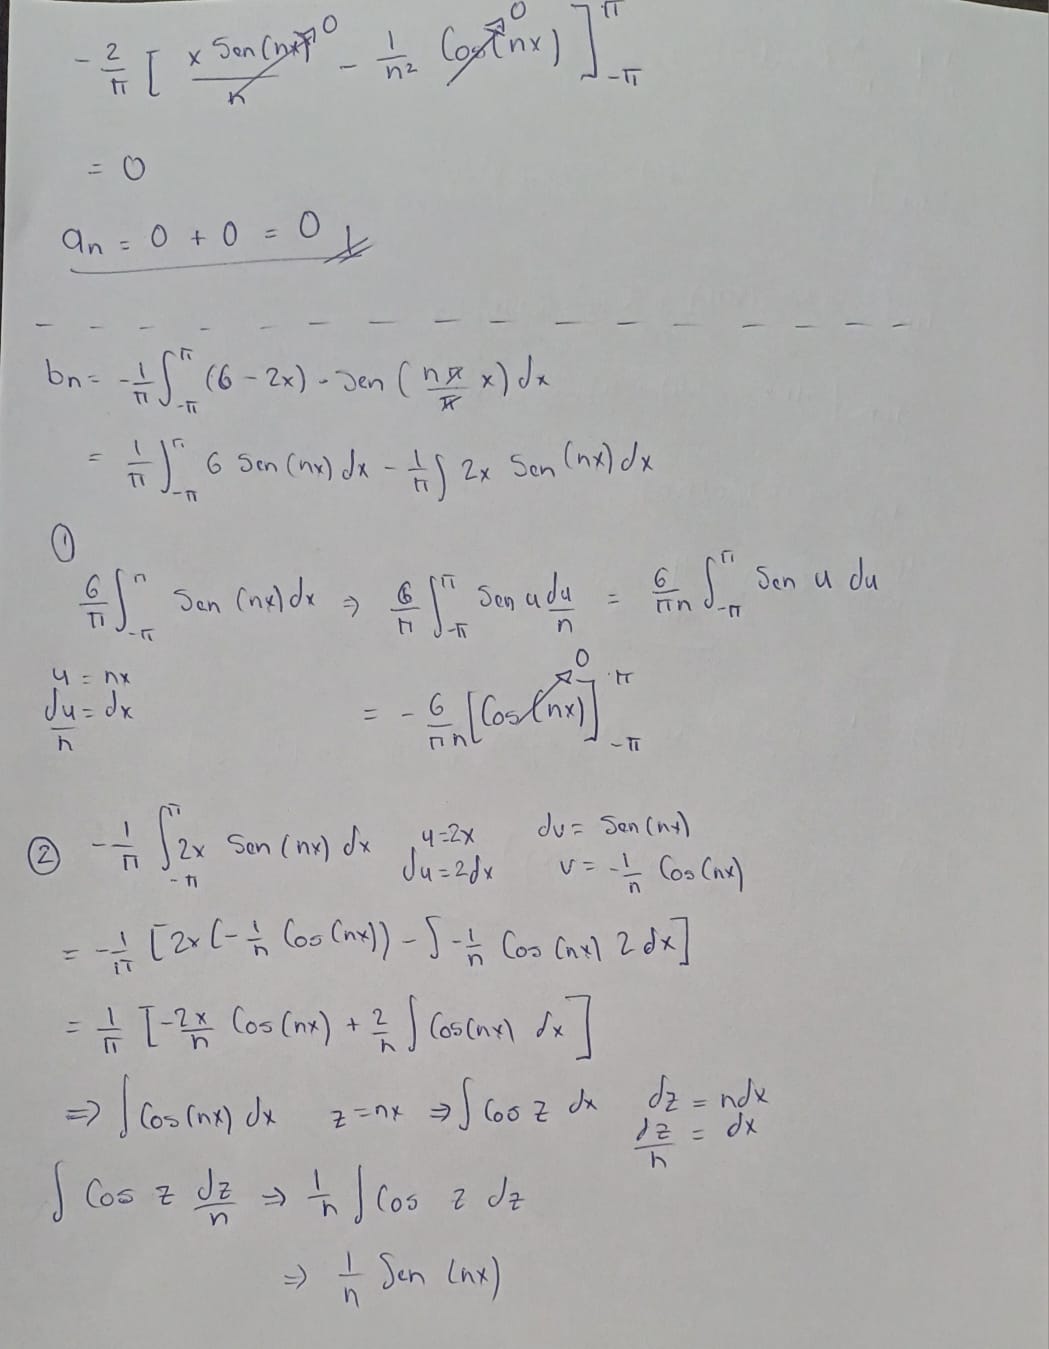 - 2/π [ x Sen(nx)/n →0 - 1/n² Cos(nx) →0 ]_{-π}^{π}
= 0
an = 0 + 0 = 0
bn = - 1/π ∫_{-π}^{π} (6 - 2x) - Sen ( nπ/π x) dx
= 1/π ∫_{-π}^{π} 6 Sen (nx) dx - 1/π ∫ 2x Sen (nx) dx
①
6/π ∫_{-π}^{π} Sen (nx) dx ⇒ 6/π ∫_{-π}^{π} Sen u du/n = 6/πn ∫_{-π}^{π} Sen u du
u = nx
du/n = dx
= - 6/πn [Cos(nx)]_{-π}^{π} →0
② - 1/π ∫_{-π}^{π} 2x Sen (nx) dx u=2x dv = Sen(nx)
du=2dx v = - 1/n Cos(nx)
= - 1/π [2x (- 1/n Cos (nx)) - ∫ - 1/n Cos (nx) 2 dx]
= 1/π [ - 2x/n Cos (nx) + 2/n ∫ Cos(nx) dx ]
⇒ ∫ Cos(nx) dx z=nx ⇒ ∫ Cos z dx dz = ndx
dz/n = dx
∫ Cos z dz/n ⇒ 1/n ∫ Cos z dz
⇒ 1/n Sen (nx)